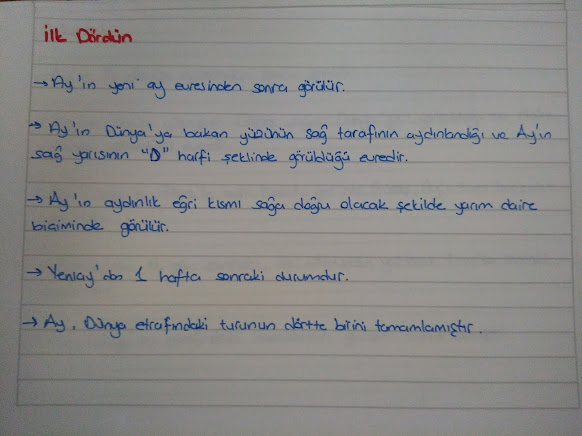 İlk Dördün
→ Ay'ın yeni ay evresinden sonra görülür.
→ Ay'ın Dünya'ya bakan yüzünün sağ tarafının aydınlandığı ve Ay'ın
sağ yarısının "D" harfi şeklinde görüldüğü evredir.
→ Ay'ın aydınlık eğri kısmı sağa doğru olacak şekilde yarım daire
biçiminde görülür.
→ Yeniay'dan 1 hafta sonraki durumdur.
→ Ay, Dünya etrafındaki turunun dörtte birini tamamlamıştır.